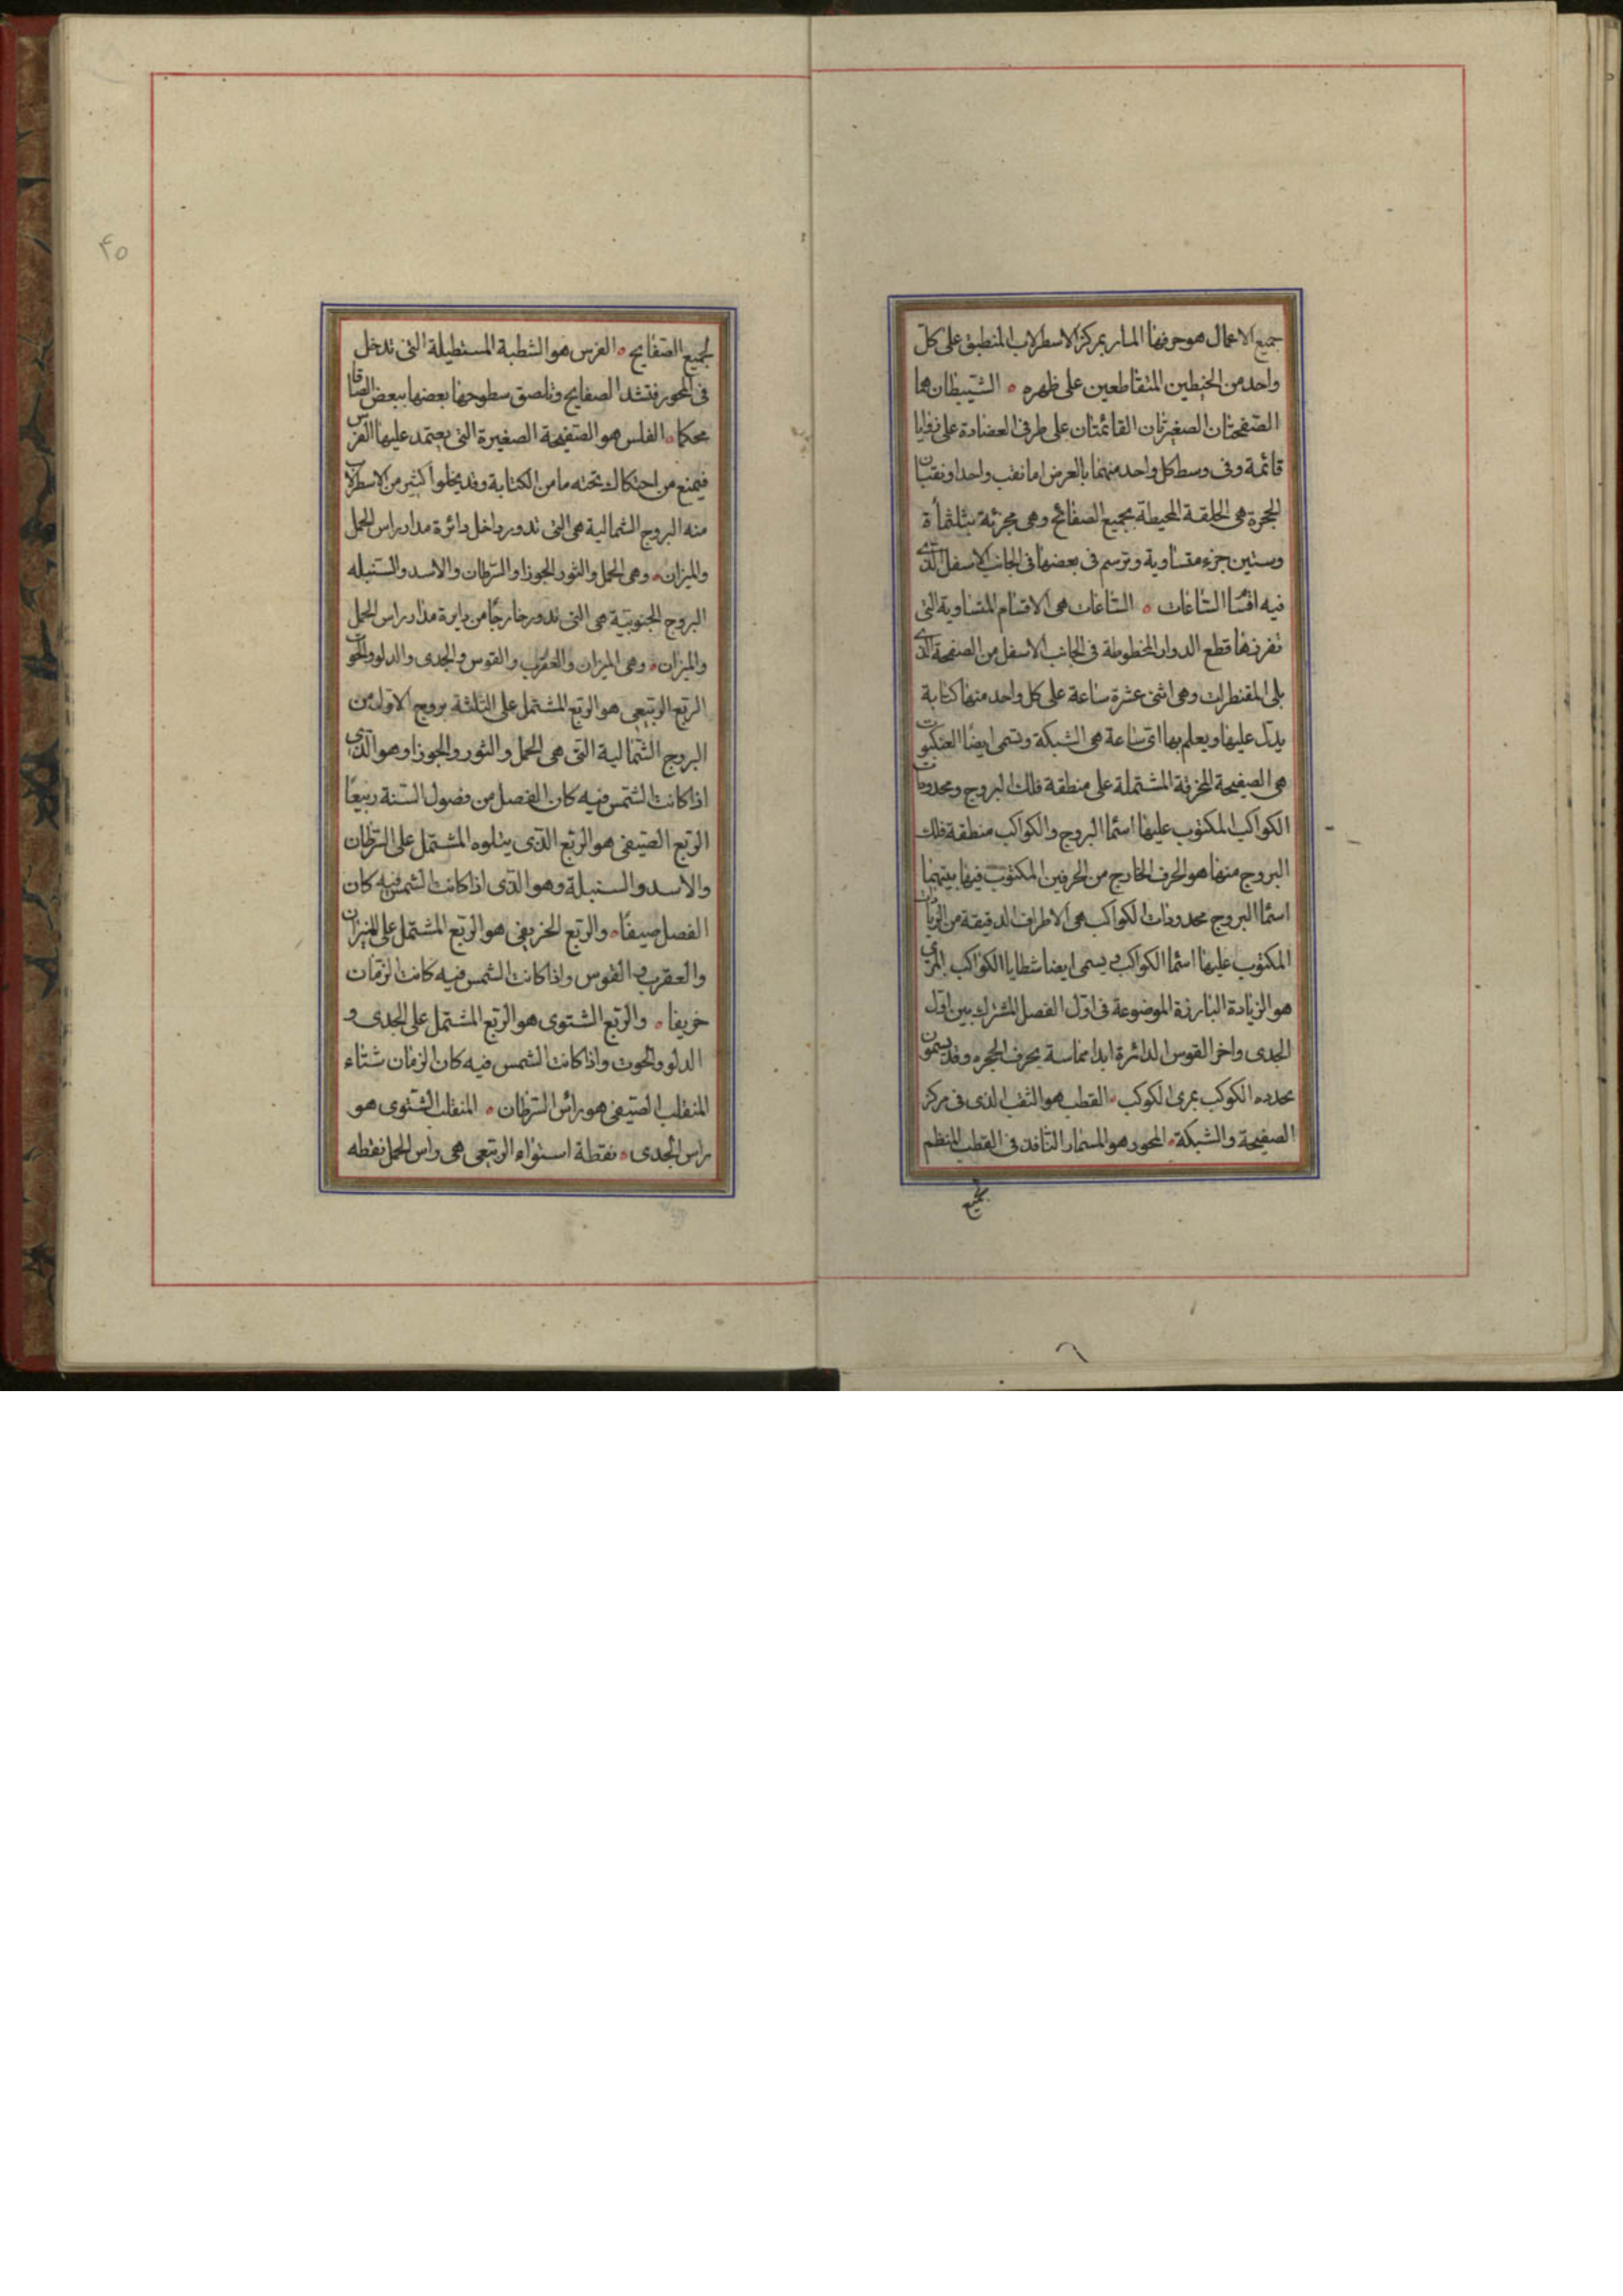 جميع الاعمال هو حرفها المار بمركز الاسطرلاب المنطبق على كل
واحد من الخيطين المتقاطعين على ظهره ۰ الشيبظان هما
الصفيحتان الصغيرتان القائمتان على طرفى العضادة على زوايا
قائمة وفى وسط كل واحد منهما بالعرض اما نقب واحد او نقبان
الحجرة هى الحلقة المحيطة بجميع الصفائح وهى مجزئة بثلثمأة
وستين جزء متساوية وترسم فى بعضها فى الجانب الاسفل الذى
فيه اقسا الساعات ۰ الساعات هى الاقسام المتساوية التى
تفرزها قطع الدواير المخطوطة فى الجانب الاسفل من الصفحة الذى
يلى المقنطرات وهى اثنى عشرة ساعة على كل واحد منها كتابة
يدل عليها ويعلم بها اى ساعة هى الشبكة وتسمى ايضا العنكبوت
هى الصفيحة المخرقة المشتملة على منطقة فلك البروج ومحدودات
الكواكب المكتوب عليها اسما البروج والكواكب منطقة فلك
البروج منها هو الحرف الخارج من الحرفين المكتوب فيها بينهما
اسما البروج محدودات الكواكب هى الاطراف الدقيقة من الزيادات
المكتوب عليها اسما الكواكب ويسمى ايضا شظايا الكواكب المرى
هو الزيادة البارزة الموضوعة فى اول الفصل المشترك بين اول
الجدى واخر القوس الدائرة ابدا مماسة بحرف الحجره وقد يسمون
محدده الكوكب بمرى الكوكب ۰ القطب هو الثقب الذى فى مركز
الصفيحة والشبكة ۰ المحور هو المسمار النافذ فى القطب المنظم
لجميع
۴۵
لجميع الصفايح ۰ الفرس هو الشطبة المستطيلة التى تدخل
فى المحور فتشد الصفايح وتلصق سطوحها بعضها ببعض الصاقا
محكما ۰ الفلس هو الصفيحة الصغيرة التى يعتمد عليها الفرس
فيمنع من احتكاك تحته ما من الكتابة وقد يخلوا كثير من الاسطرلاب
منه البروج الشمالية هى التى تدور داخل دائرة مدار راس الحمل
والميزان ۰ وهى الحمل والثور الجوزا والسرطان والاسد والسنبله
البروج الجنوبية هى التى تدور خارجا من دايرة مدار راس الحمل
والميزان ۰ وهى الميزان والعقرب والقوس والجدى والدلو والحوت
الربع الربيعى هو الربع المشتمل على الثلثة بروج الاول من
البروج الشمالية التى هى الحمل والثور والجوزا وهو الذى
اذا كانت الشمس فيه كان الفصل من فصول السنة ربيعا
الربع الصيفى هو الربع الذى يتلوه المشتمل على السرطان
والاسد والسنبلة وهو الذى اذا كانت الشمس فيه كان
الفصل صيفا ۰ والربع الخريفى هو الربع المشتمل على الميزان
والعقرب والقوس واذا كانت الشمس فيه كانت الزمان
خريفا ۰ والربع الشتوى هو الربع المشتمل على الجدى و
الدلو والحوت واذا كانت الشمس فيه كان الزمان شتاء
المنقلب الصيفى هو راس السرطان ۰ المنقلب الشتوى هو
راس الجدى ۰ نقطة استواء الربيعى هى راس الحمل نقطه